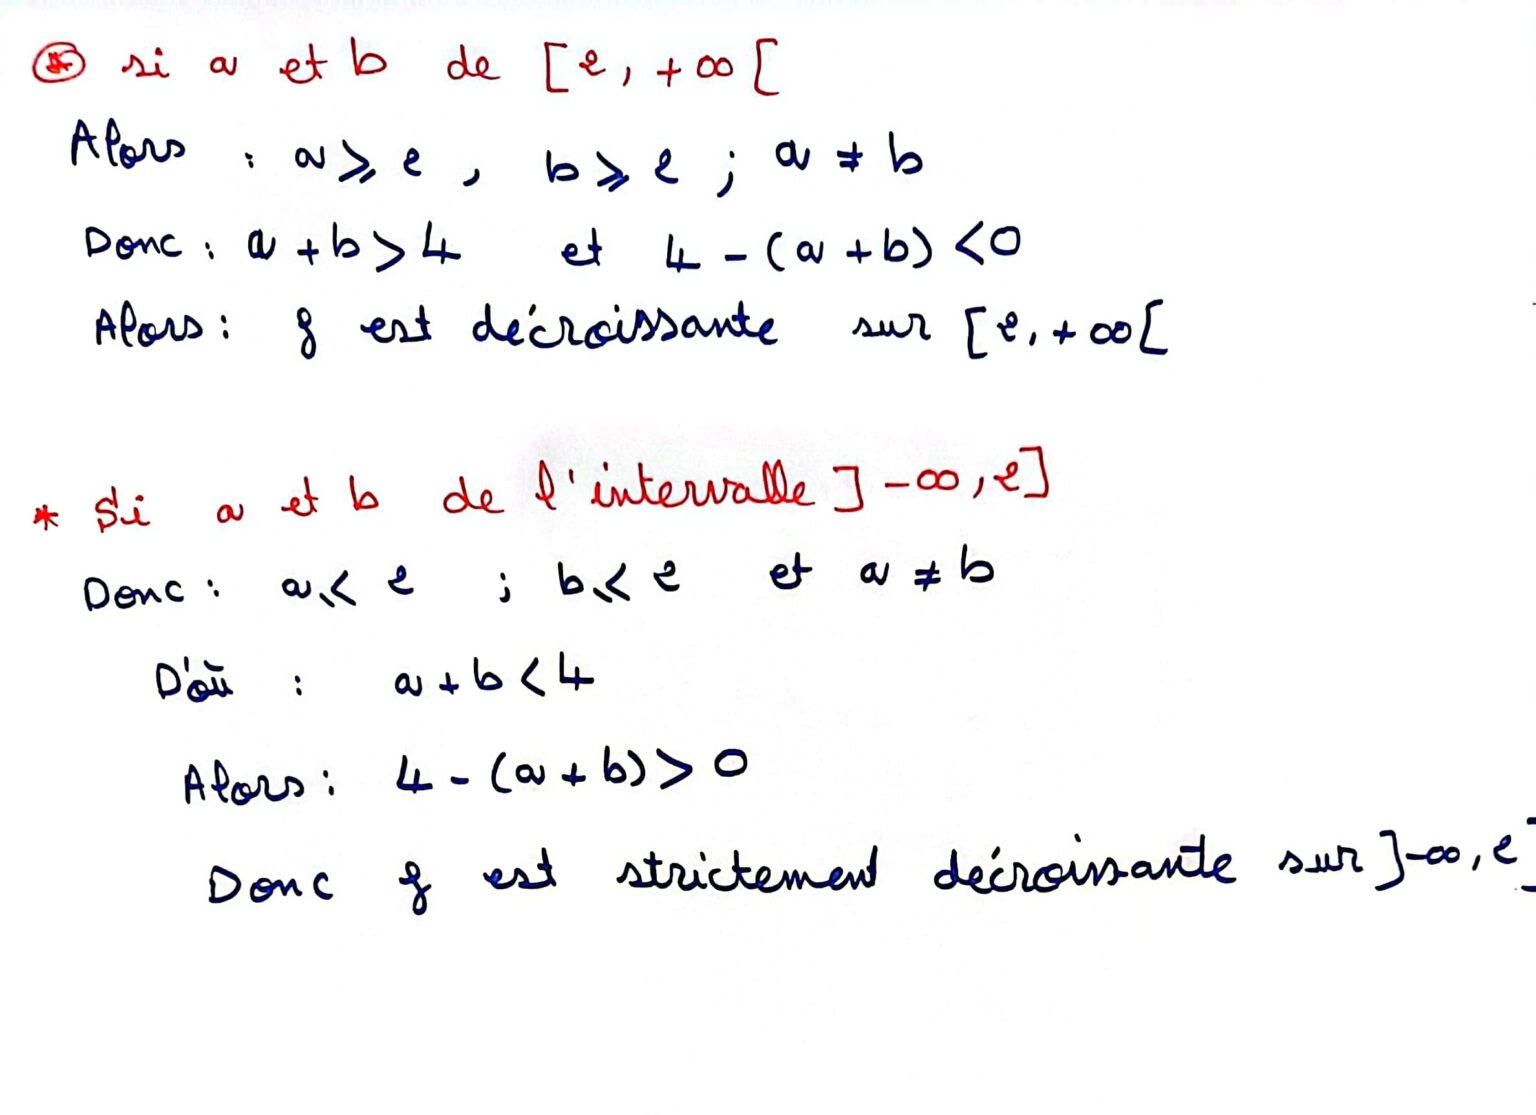 ⊛ si a et b de [2, +∞[
Alors : a ⩾ 2 , b ⩾ 2 ; a ≠ b
Donc : a + b > 4 et 4 - (a + b) < 0
Alors : f est décroissante sur [2, +∞[
* Si a et b de l'intervalle ] -∞, 2]
Donc : a ⩽ 2 ; b ⩽ 2 et a ≠ b
D'où : a + b < 4
Alors : 4 - (a + b) > 0
Donc f est strictement décroissante sur ]-∞, 2]